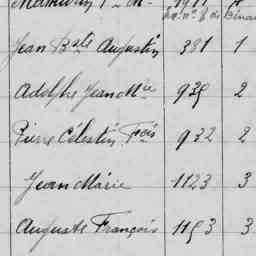 Jean Bte Augustin 381 1
Adolphe Jean Mie 939 2
Pierre Célestin Fois 932 2
Jean Marie 1123 3
Auguste François 1153 3